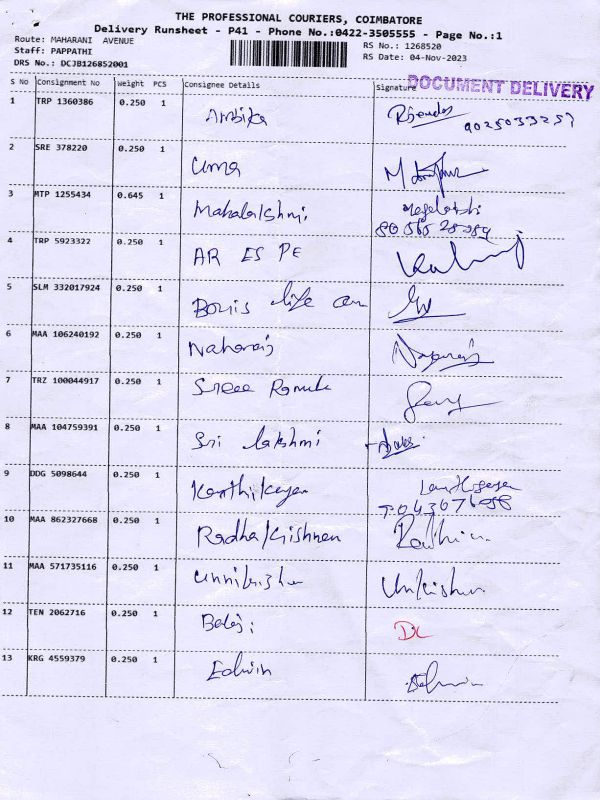 THE PROFESSIONAL COURIERS, COIMBATORE
Delivery Runsheet - P41 - Phone No.:0422-3505555 - Page No.:1
Route: MAHARANI AVENUE
RS No.: 1268520
Staff: PAPPATHI
RS Date: 04-Nov-2023
DRS No.: DCJB126852001
DOCUMENT DELIVERY
S No Consignment No Weight PCS Consignee Details Signature
1 TRP 1360386 0.250 1 Ambika
9025033257
2 SRE 378220 0.250 1 Uma
3 MTP 1255434 0.645 1 Mahalakshmi
4 TRP 5923322 0.250 1 AR ES PE
5 SLM 332017924 0.250 1 life
6 MAA 106240192 0.250 1 Naharaj
7 TRZ 100044917 0.250 1 Sree
8 MAA 104759391 0.250 1 Sri lakshmi
9 DDG 5098644 0.250 1 Karthikeyan
10 MAA 862327668 0.250 1 Radhakrishnan
11 MAA 571735116 0.250 1 Unnikrishnan
12 TEN 2062716 0.250 1 Balaji DC
13 KRG 4559379 0.250 1 Edwin